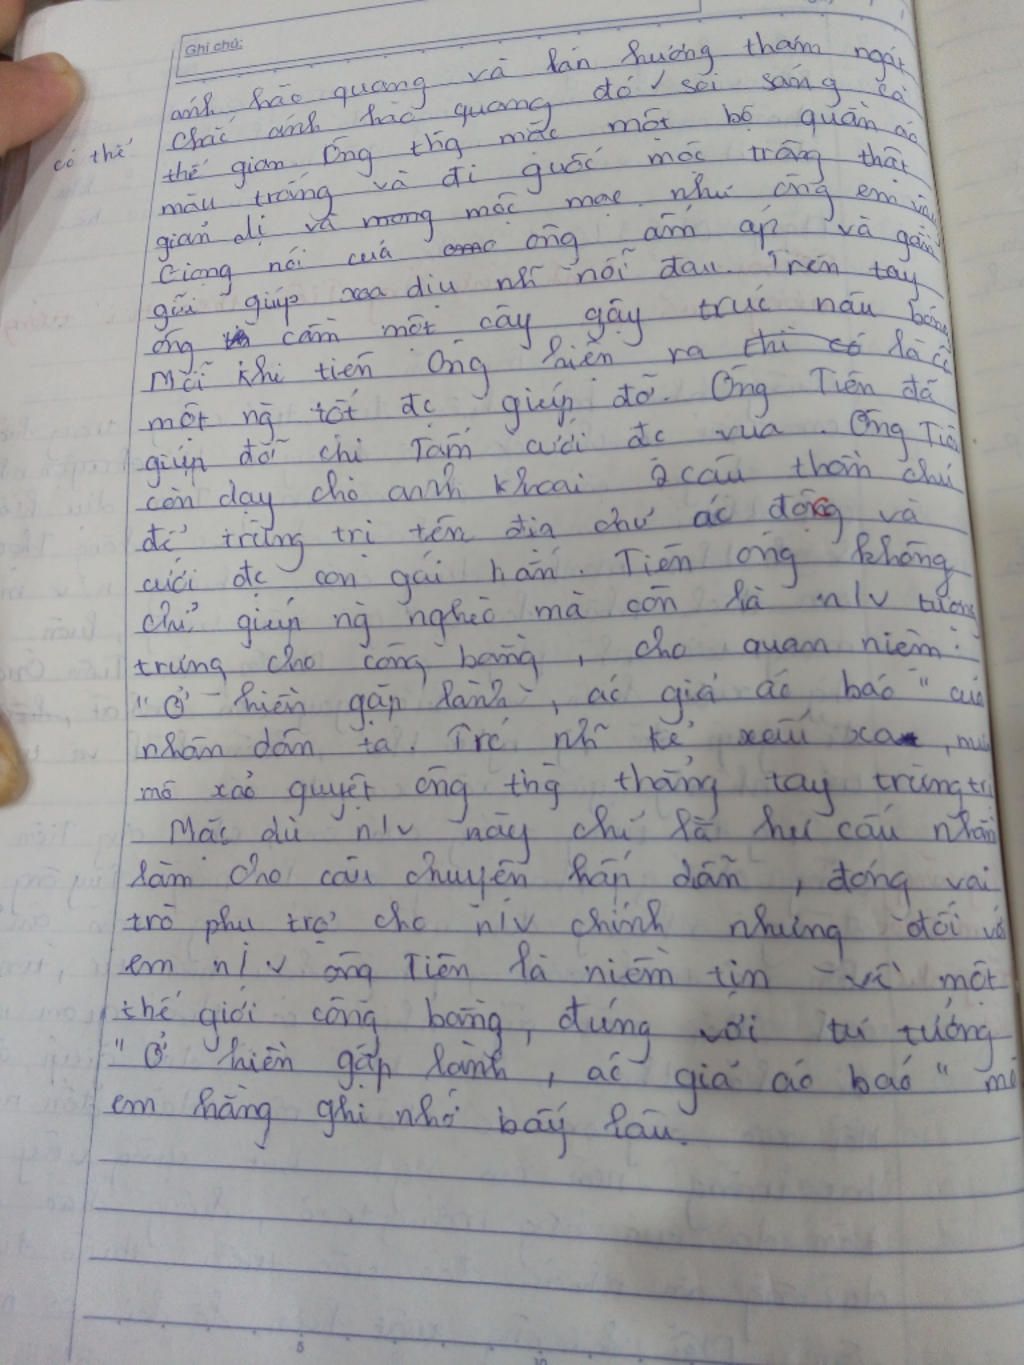 Ghi chú:
ánh hào quang và làn hương thơm ngát
chắc ánh hào quang đó soi sáng cả
có thể
thế gian. Ông thg mặc một bộ quần áo
màu trắng và đi guốc mộc trông thật
giản dị và mong mộc mạc như ông em vậy
Giọng nói của ông ấm áp và gần
gũi giúp xoa dịu nh~ nỗi đau. Trên tay
ông cầm một cây gậy trúc nâu bóng
Mỗi khi tiên Ông hiện ra thì có là có
một ng tốt đc giúp đỡ. Ông Tiên đã
giúp đỡ chị Tấm cưới đc vua. Ông Tiên
còn dạy cho anh Khoai 2 câu thần chú
để trừng trị tên địa chủ ác độc và
cưới đc con gái hắn. Tiên ông không
chỉ giúp ng nghèo mà còn là n/v tượng
trưng cho công bằng, cho quan niệm:
"Ở hiền gặp lành, ác giả ác báo" của
nhân dân ta. Trc nh~ kẻ xấu xa, mưu
mô xảo quyệt ông thg thẳng tay trừng trị
Mặc dù n/v này chỉ là hư cấu nhằm
làm cho câu chuyện hấp dẫn, đóng vai
trò phụ trợ cho n/v chính nhưng đối với
em n/v ông Tiên là niềm tin về một
thế giới công bằng, đúng với tư tưởng
"Ở hiền gặp lành, ác giả ác báo" mà
em hằng ghi nhớ bấy lâu.
5
10